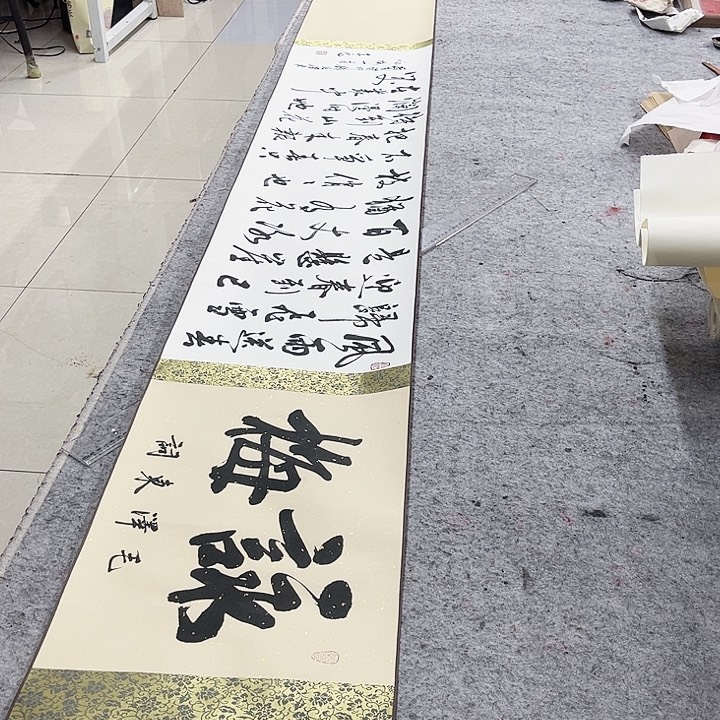 詠梅
毛澤東詞
風雨送春
歸飛雪
迎春到已
是懸崖
百丈冰
猶有花
枝俏〻也
不爭春只
把春來報
待到山花
爛漫時她
在叢中
笑